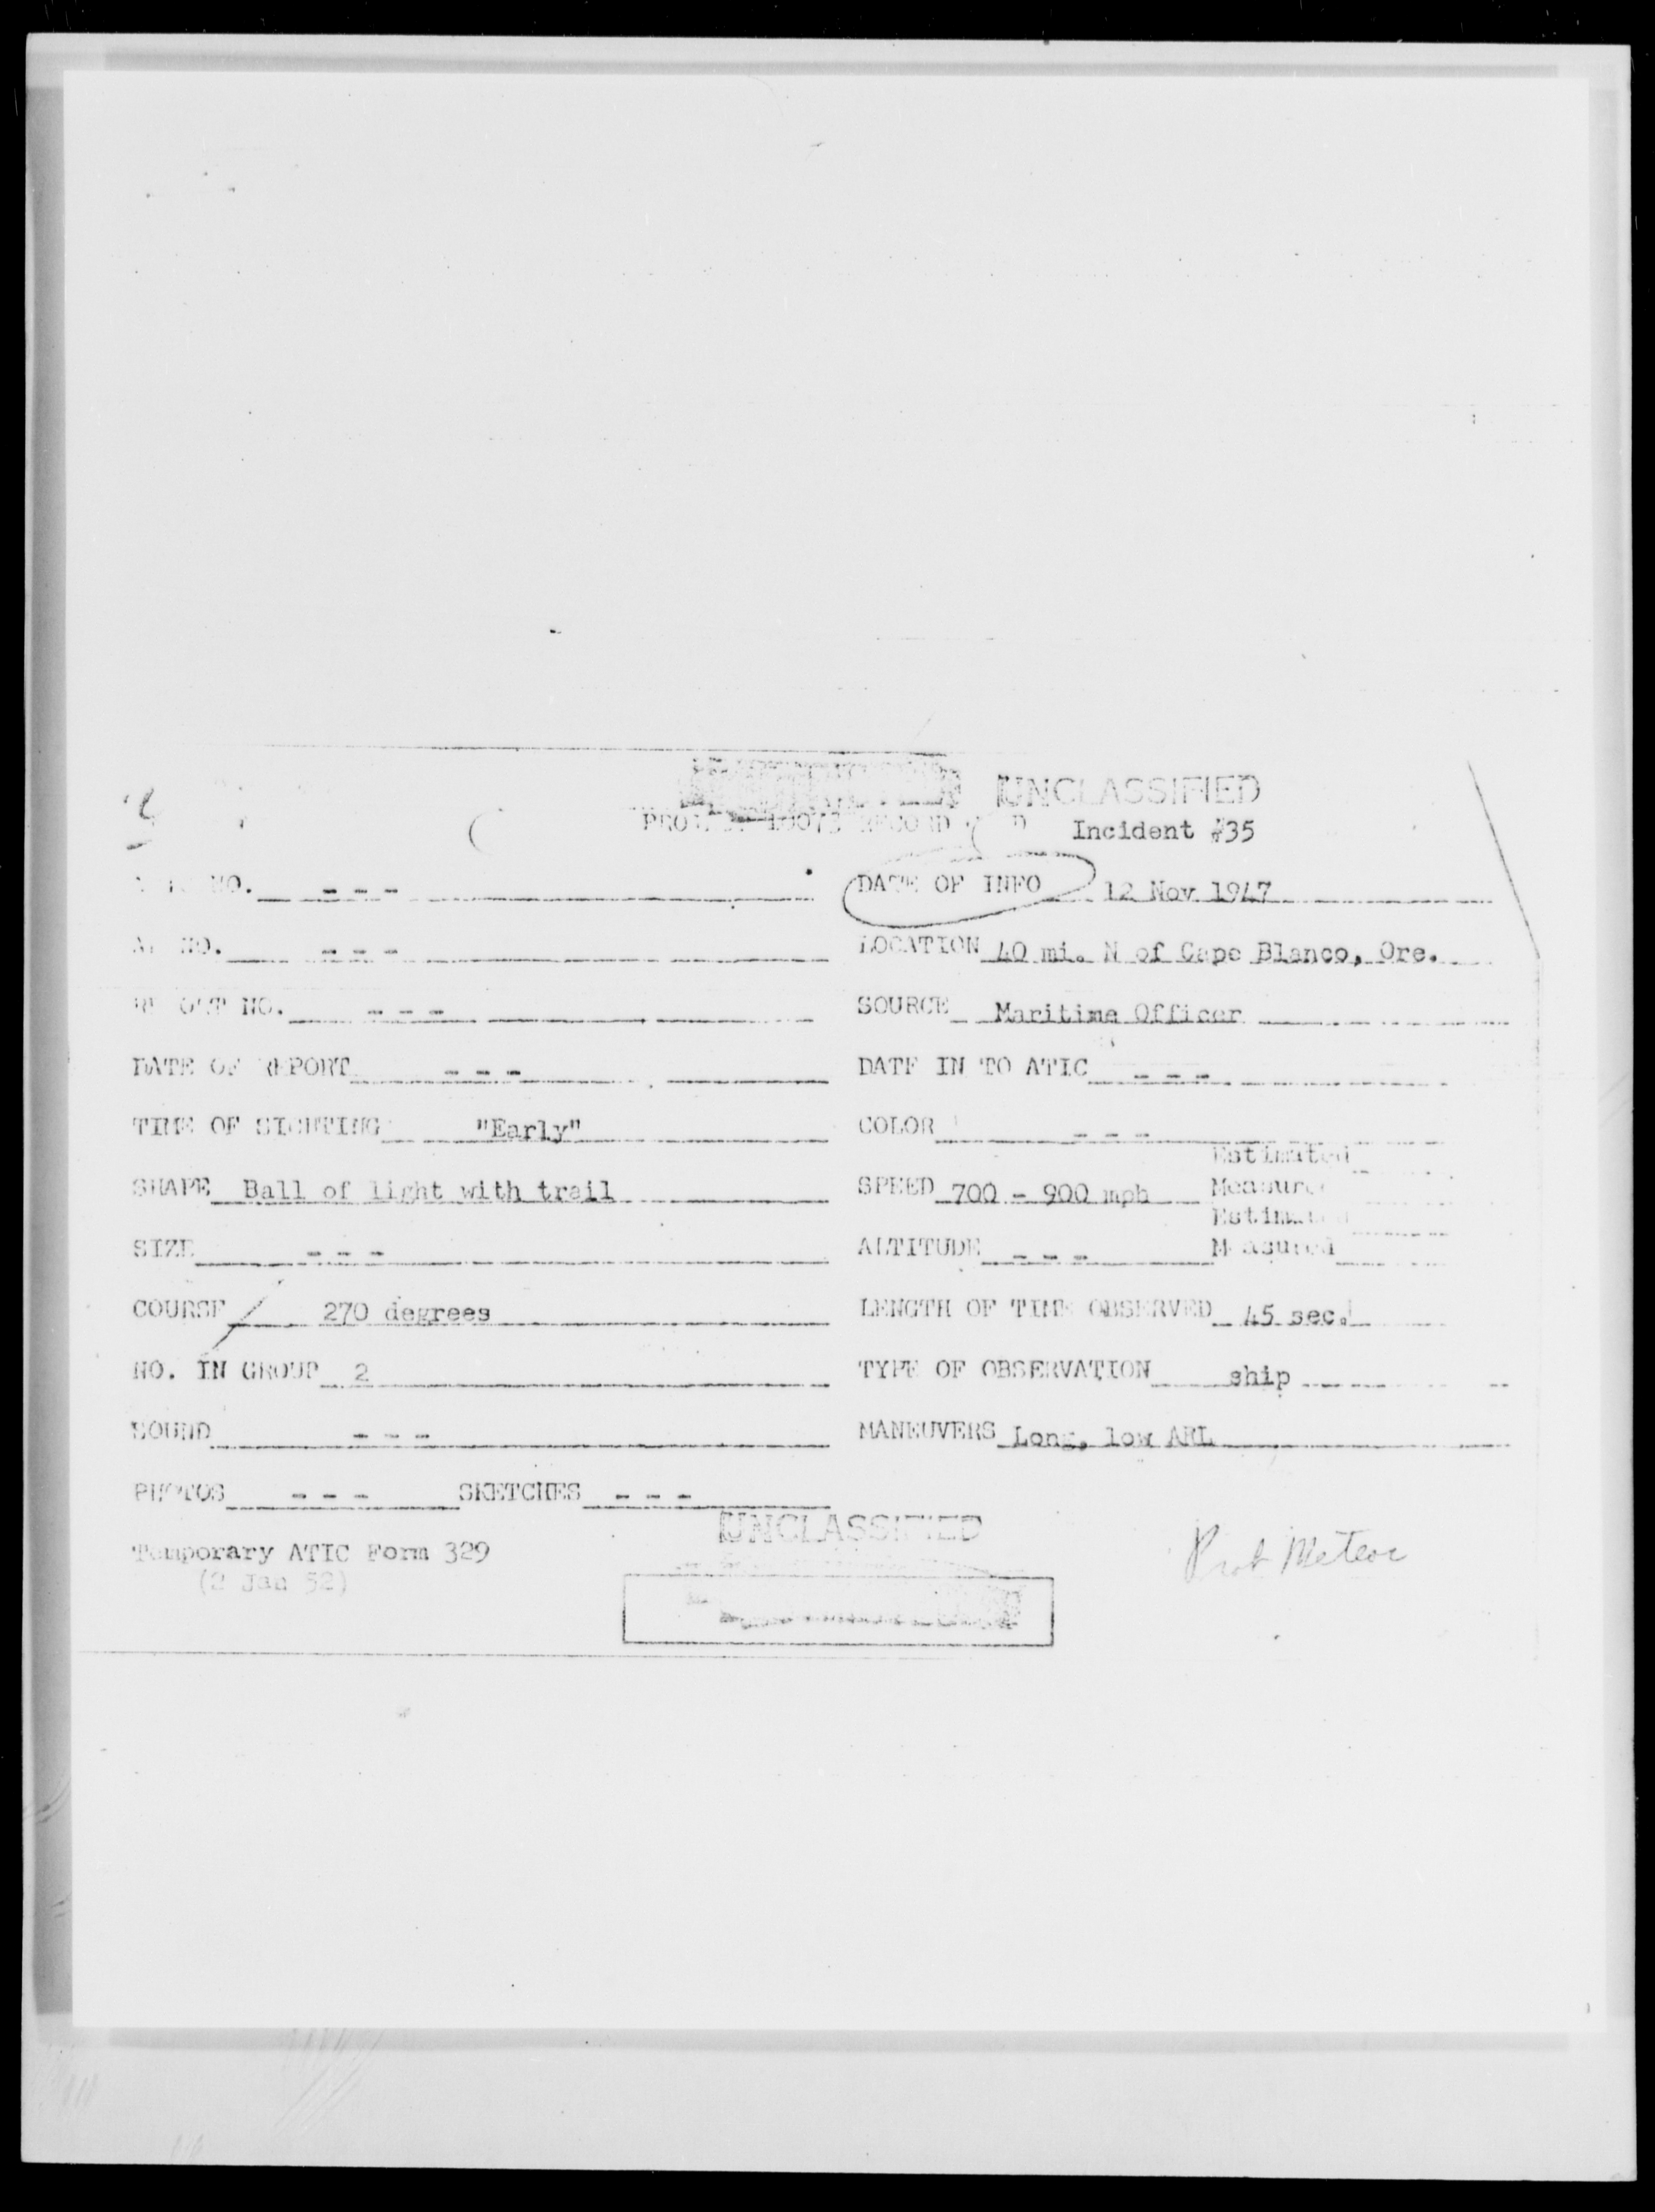 UNCLASSIFIED
RECORD Incident #35
NO. - - - DATE OF INFO 12 Nov 1947
NO. - - - LOCATION 40 mi. N of Cape Blanco, Ore.
NO. - - - SOURCE Maritime Officer
DATE OF REPORT - - - DATE IN TO ATIC - - -
TIME OF SIGHTING "Early" COLOR - - -
Estimated
SHAPE Ball of light with trail SPEED 700 - 900 mph Measured
Estimated
SIZE - - - ALTITUDE - - - Measured
COURSE 270 degrees LENGTH OF TIME OBSERVED 45 sec.
NO. IN GROUP 2 TYPE OF OBSERVATION ship
SOUND - - - MANEUVERS Long, low ARL
PHOTOS - - - SKETCHES - - -
UNCLASSIFIED
Temporary ATIC Form 329 Prob Meteor
(2 Jan 52)